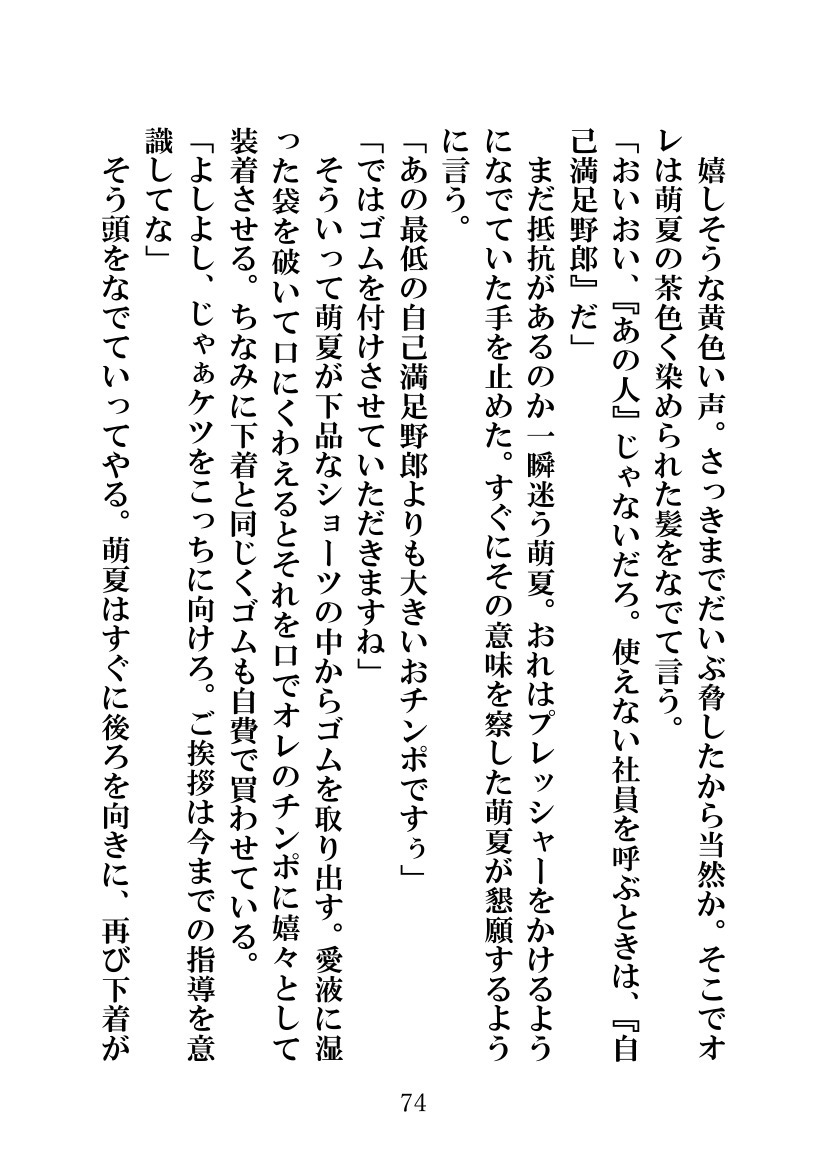 嬉しそうな黄色い声。さっきまでだいぶ脅したから当然か。そこでオ
レは萌夏の茶色く染められた髪をなでて言う。
「おいおい、『あの人』じゃないだろ。使えない社員を呼ぶときは、『自
己満足野郎』だ」
まだ抵抗があるのか一瞬迷う萌夏。おれはプレッシャーをかけるよう
になでていた手を止めた。すぐにその意味を察した萌夏が懇願するよう
に言う。
「あの最低の自己満足野郎よりも大きいおチンポですぅ」
「ではゴムを付けさせていただきますね」
そういって萌夏が下品なショーツの中からゴムを取り出す。愛液に湿
った袋を破いて口にくわえるとそれを口でオレのチンポに嬉々として
装着させる。ちなみに下着と同じくゴムも自費で買わせている。
「よしよし、じゃぁケツをこっちに向けろ。ご挨拶は今までの指導を意
識してな」
そう頭をなでていってやる。萌夏はすぐに後ろを向きに、再び下着が
74